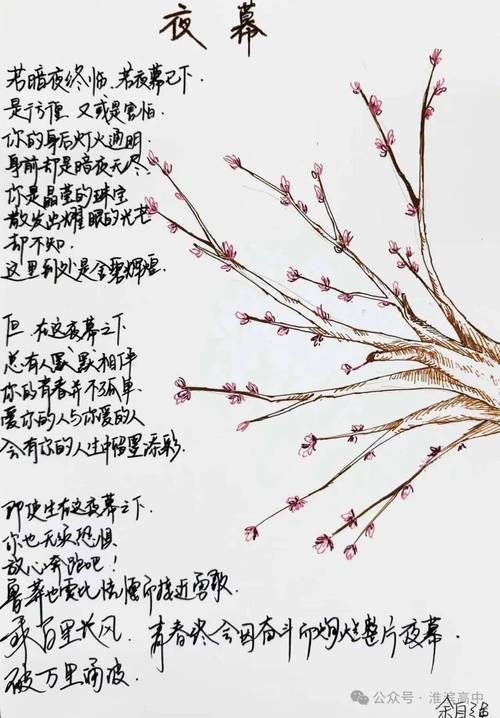 夜幕
若暗夜终临,若夜幕已下.
是彷徨 又或是害怕
你的身后灯火通明
身前却是暗夜无尽.
你是晶莹的珠宝
散发出耀眼的光芒
却不知.
这里到处是金碧辉煌.
但 在这夜幕之下
总有人默默相伴
你的青春并不孤单.
爱你的人与你爱的人
会在你的人生中留墨添彩.
即使生在这夜幕之下.
你也无须恐惧.
放心奔跑吧!
鲁莽也要比怯懦更接近勇敢.
乘百里长风. 青春终会因奋斗而灿烂整片夜幕.
破万里涌波.
公众号·淮滨高中